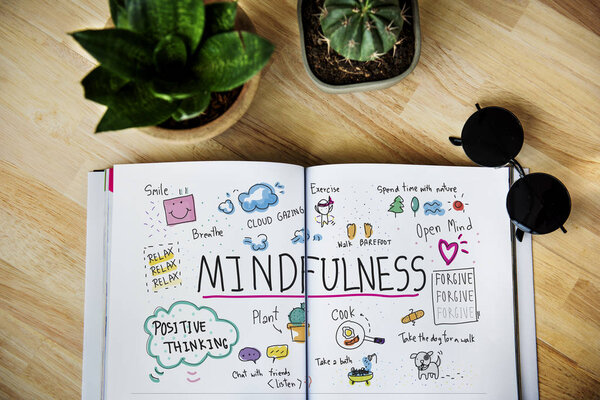 Smile
Breathe
CLOUD GAZING
RELAX
RELAX
RELAX
Exercise
Spend time with nature
WALK BAREFOOT
Open Mind
MINDFULNESS
FORGIVE
FORGIVE
FORGIVE
POSITIVE
THINKING
Plant
Chat with friends
(listen)
Cook
Take a bath
Take the dog for a walk